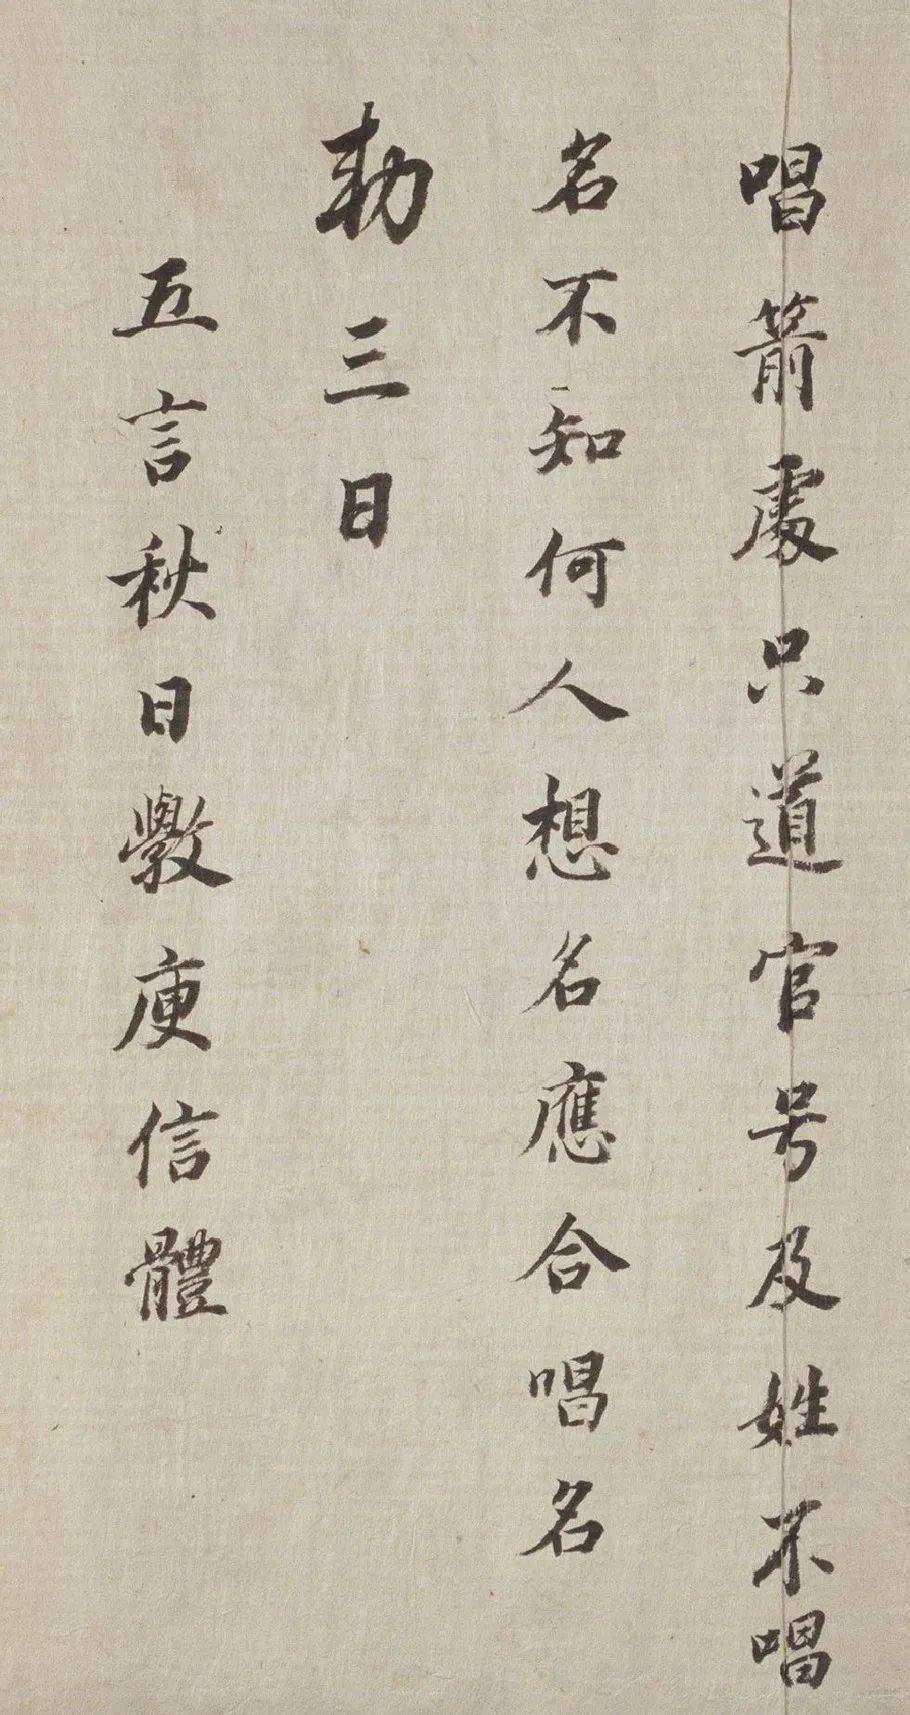 唱箭處只道官号及姓不唱
名不知何人想名應合唱名
勑三日
五言秋日斆庾信體